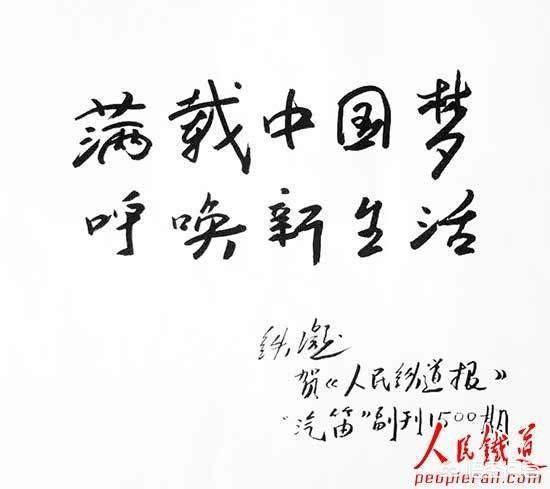 满载中国梦
呼唤新生活
铁凝
贺《人民铁道报》
"汽笛"副刊1500期
人民鐵道
peoplerail.com